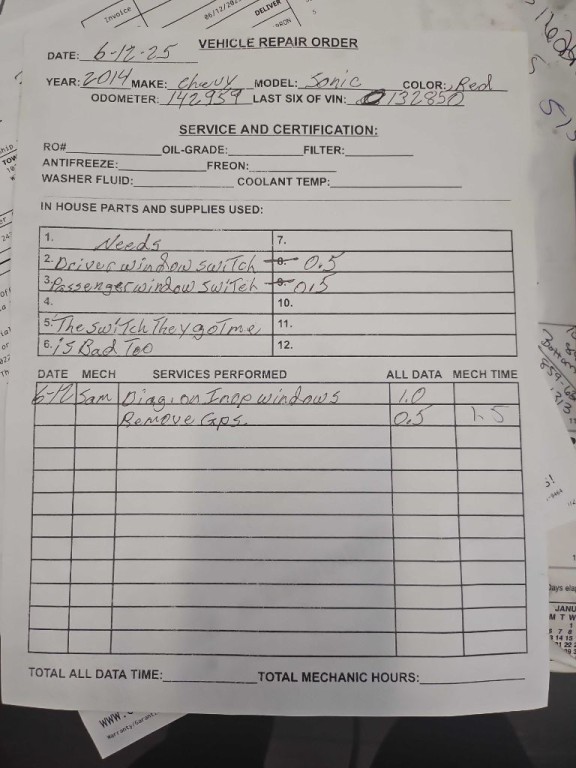 Invoice
06/12/202
DELIVER
VEHICLE REPAIR ORDER
DATE: 6-12-25
YEAR: 2014 MAKE: Chevy MODEL: Sonic COLOR: Red
ODOMETER: 142959 LAST SIX OF VIN: 132850
SERVICE AND CERTIFICATION:
RO# OIL-GRADE: FILTER:
ANTIFREEZE: FREON:
WASHER FLUID: COOLANT TEMP:
IN HOUSE PARTS AND SUPPLIES USED:
1. Needs 7.
2. Driver window switch 8. 0.5
3. Passenger window switch 9. 0.5
4. 10.
5. The switch They got me 11.
6. is Bad Too 12.
DATE MECH SERVICES PERFORMED ALL DATA MECH TIME
6-12 Sam Diag. on Inop windows 1.0
Remove Caps. 0.5 1.5
TOTAL ALL DATA TIME: TOTAL MECHANIC HOURS:
Days ela
JANU
M T W
www.